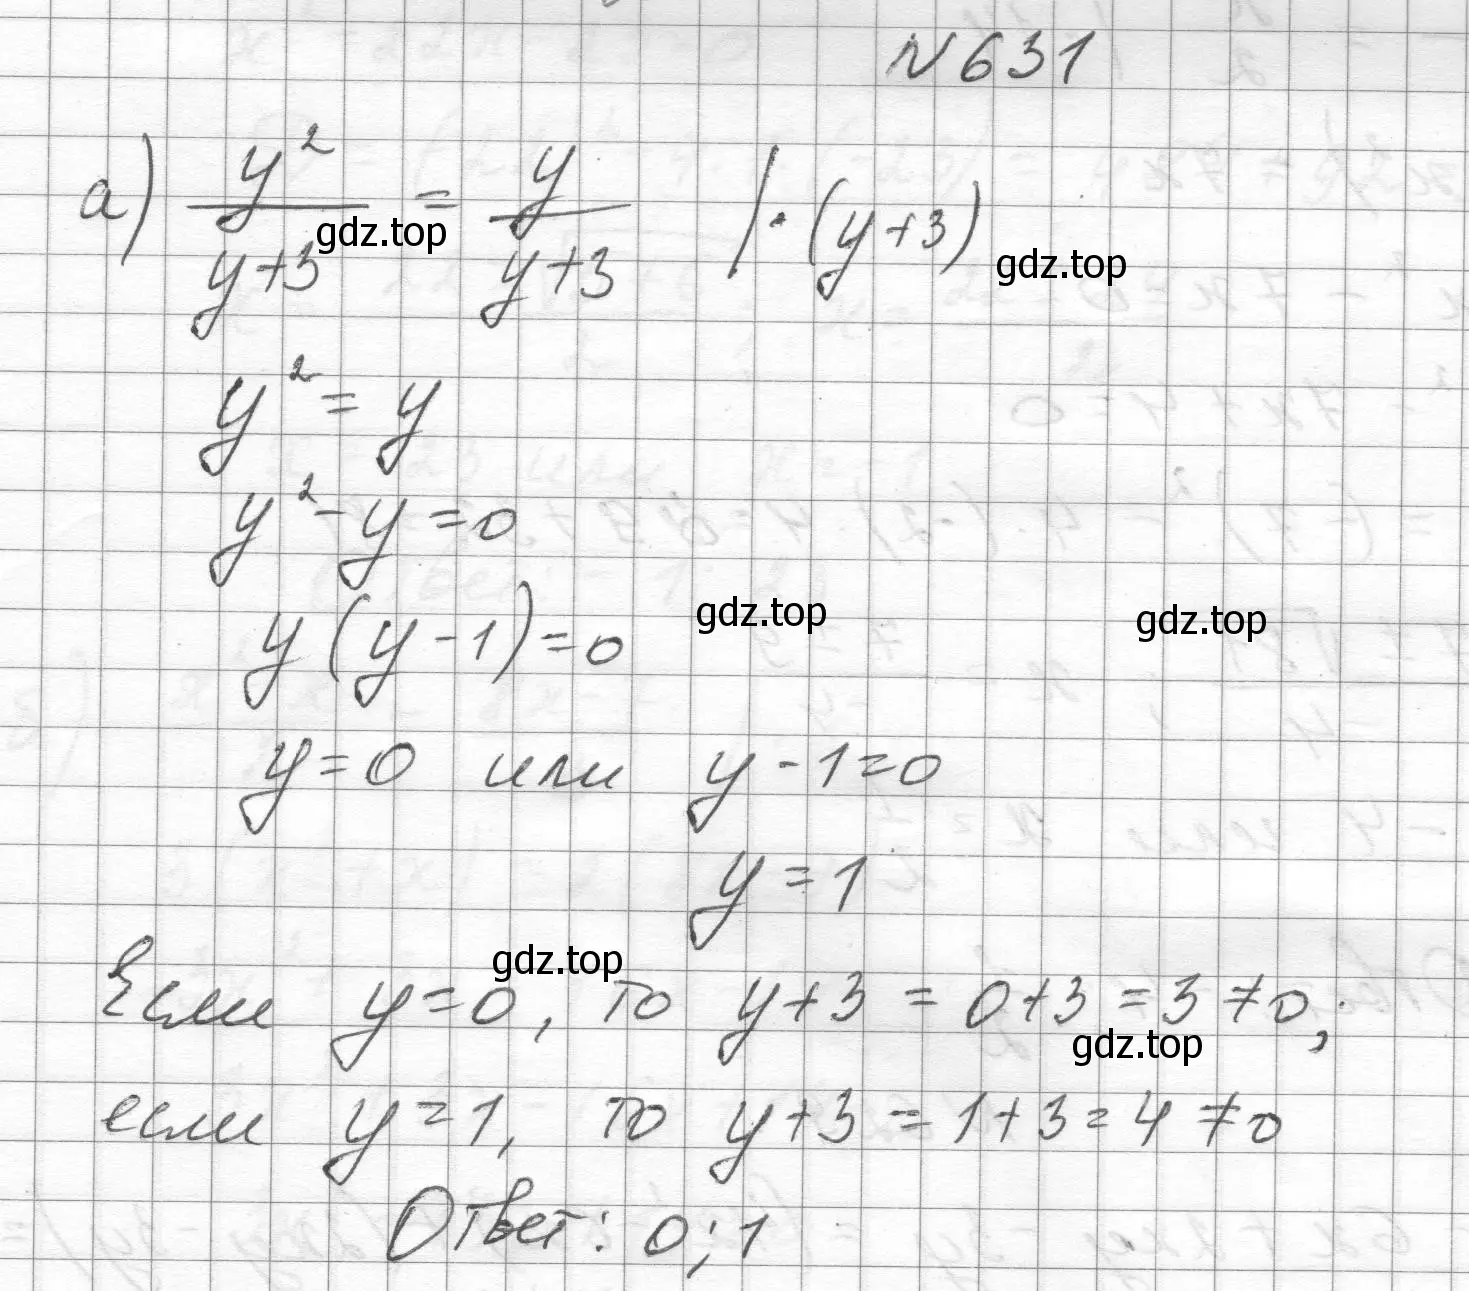 № 631
а) y²/(y+3) = y/(y+3) | · (y+3)
gdz.top gdz.top
y² = y
y² - y = 0
y (y - 1) = 0
gdz.top gdz.top
y = 0 или y - 1 = 0
y = 1
gdz.top
Если y = 0, то y + 3 = 0 + 3 = 3 ≠ 0;
gdz.top
если y = 1, то y + 3 = 1 + 3 = 4 ≠ 0
Ответ: 0; 1